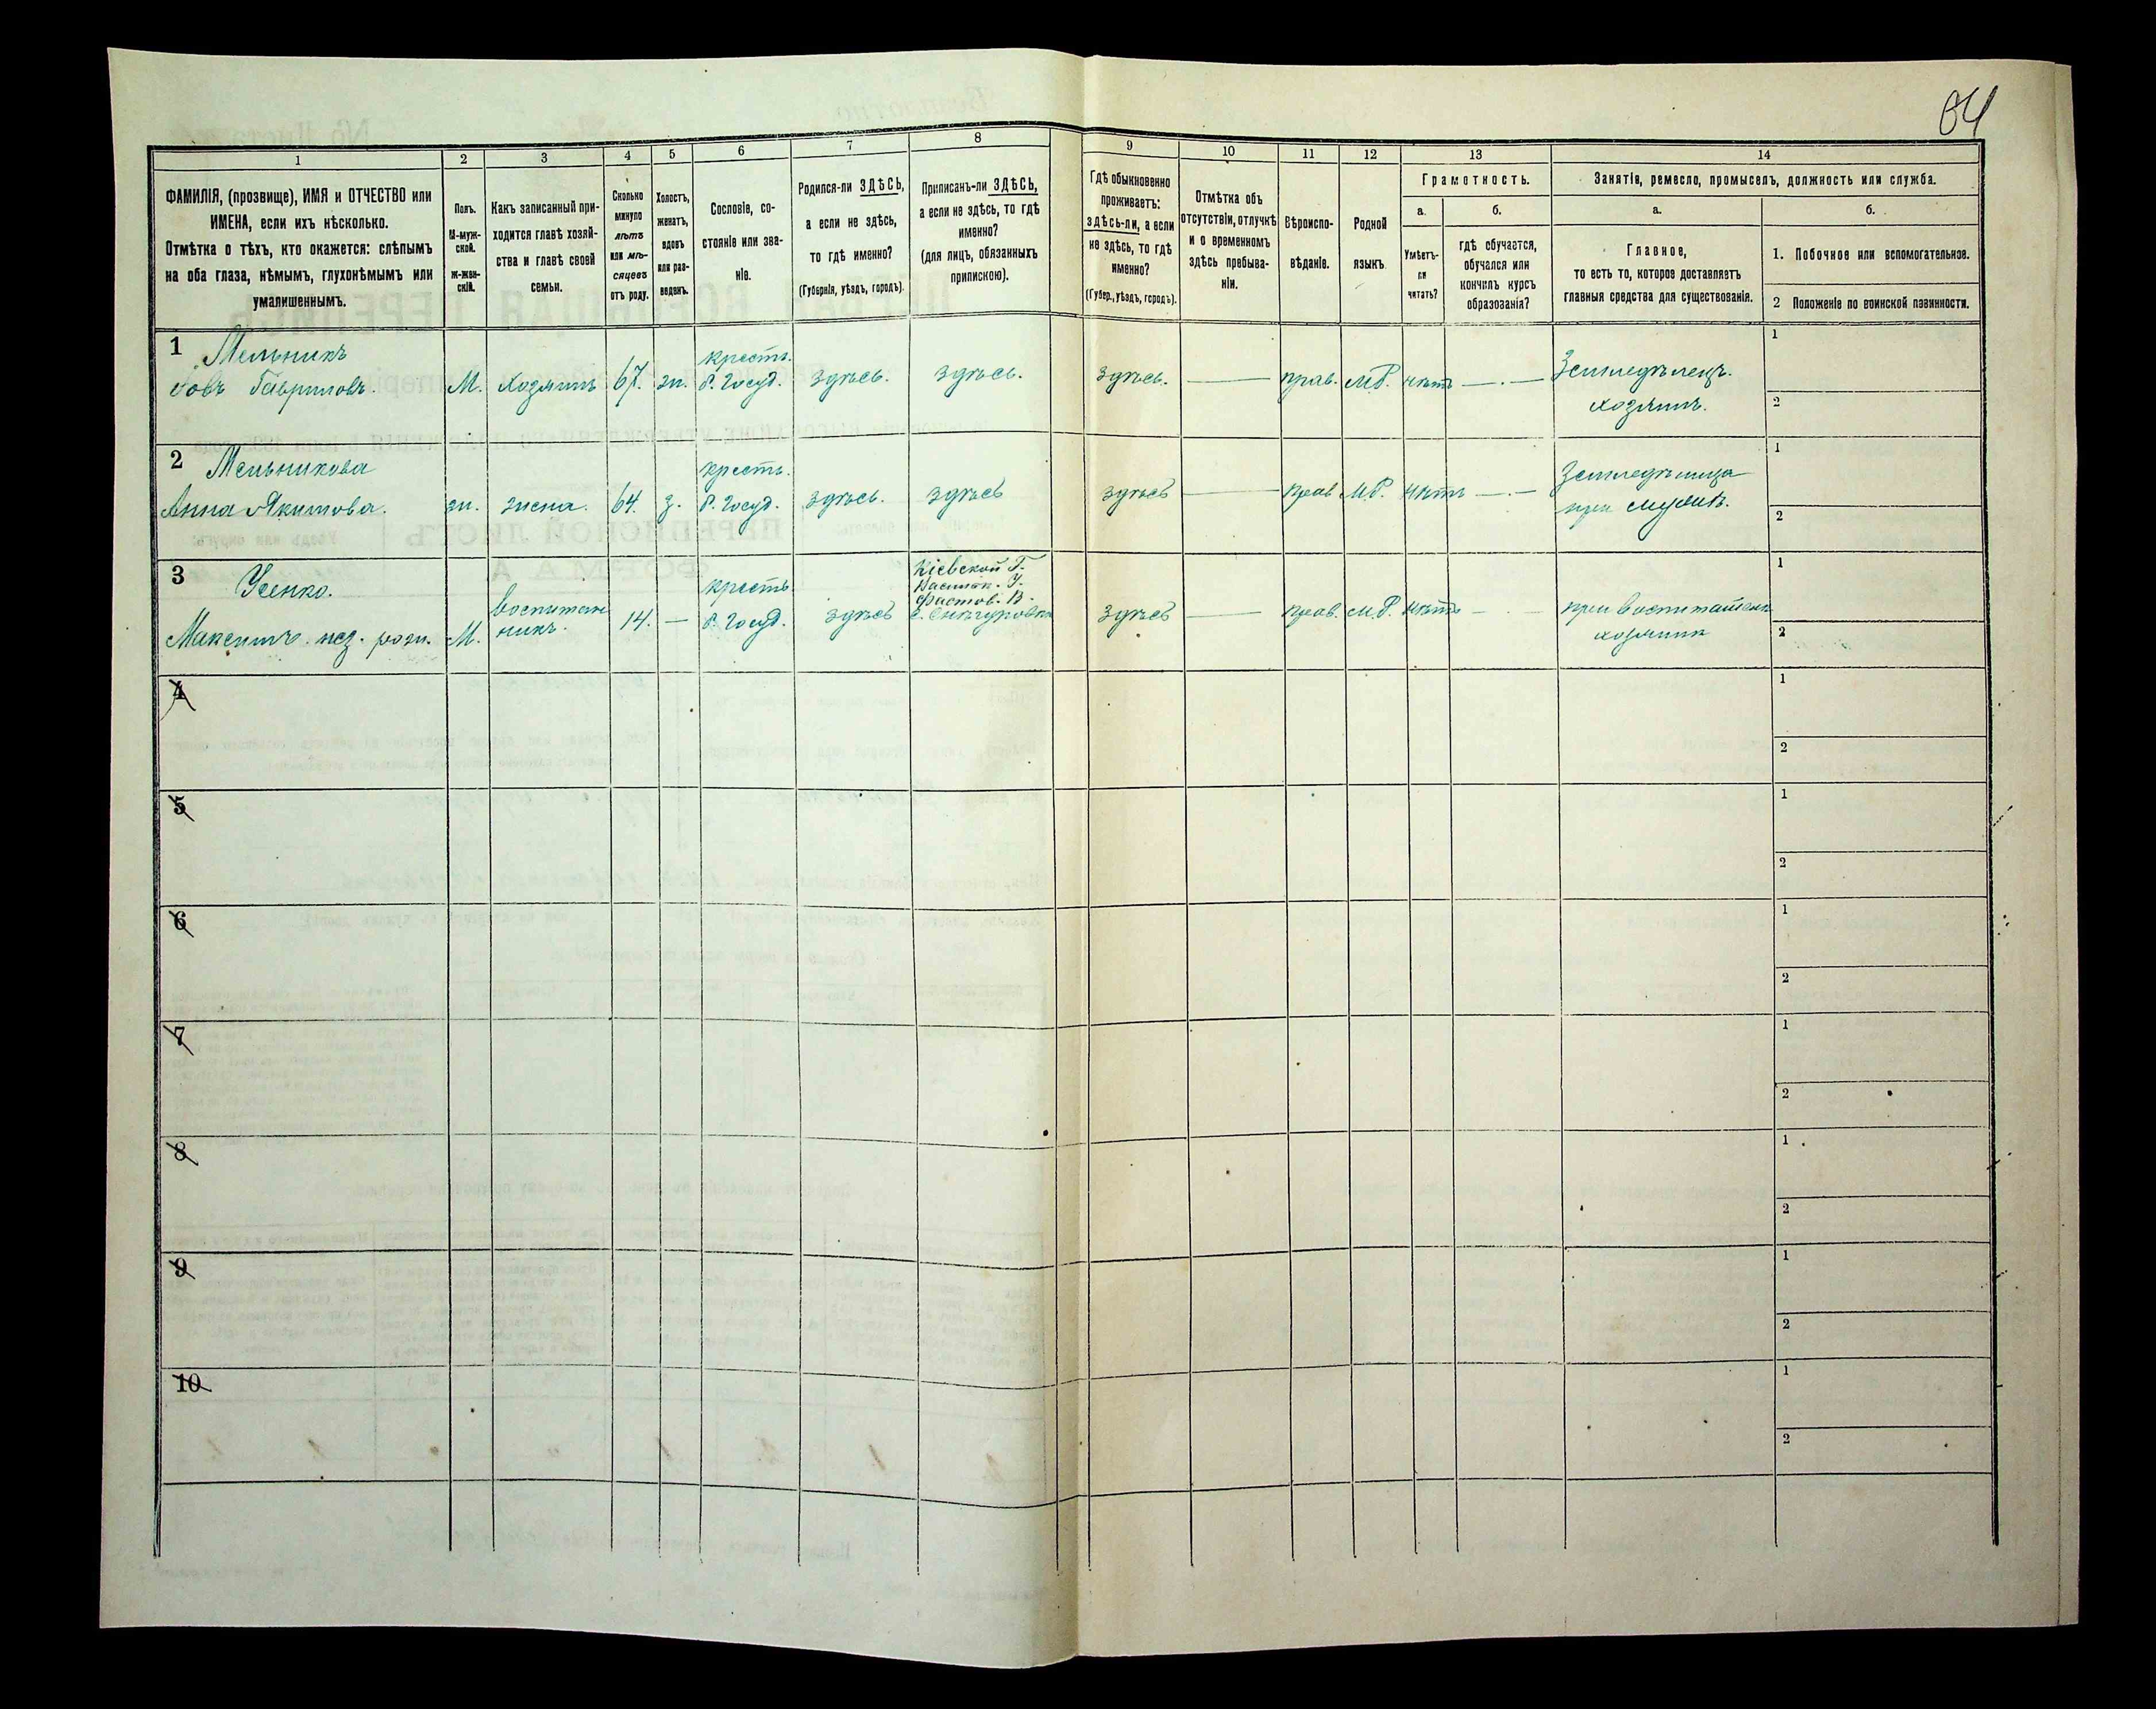 64
1 2 3 4 5 6 7 8 9 10 11 12 13 14
ФАМИЛІЯ, (прозвище), ИМЯ и ОТЧЕСТВО или
ИМЕНА, если ихъ нѣсколько.
Отмѣтка о тѣхъ, кто окажется: слѣпымъ
на оба глаза, нѣмымъ, глухонѣмымъ или
умалишеннымъ.
Полъ.
М-муж-
ской.
ж-жен-
скій.
Какъ записанный при-
ходится главѣ хозяй-
ства и главѣ своей
семьи.
Сколько
минуло
лѣтъ
или мѣ-
сяцевъ
отъ роду.
Холостъ,
женатъ,
вдовъ
или раз-
веденъ.
Сословіе, со-
стояніе или зва-
ніе.
Родился-ли ЗДѢСЬ,
а если не здѣсь,
то гдѣ именно?
(Губернія, уѣздъ, городъ).
Приписанъ-ли ЗДѢСЬ,
а если не здѣсь, то гдѣ
именно?
(для лицъ, обязанныхъ
припискою).
Гдѣ обыкновенно
проживаетъ:
здѣсь-ли, а если
не здѣсь, то гдѣ
именно?
(Губер., уѣздъ, городъ).
Отмѣтка объ
отсутствіи, отлучкѣ
и о временномъ
здѣсь пребыва-
ніи.
Вѣроиспо-
вѣданіе.
Родной
языкъ.
Грамотность.
а.
Умѣетъ-
ли
читать?
б.
гдѣ обучается,
обучался или
кончилъ курсъ
образованія?
Занятіе, ремесло, промыселъ, должность или служба.
а.
Главное,
то есть то, которое доставляетъ
главныя средства для существованія.
б.
1. Побочное или вспомогательное.
2 Положеніе по воинской повинности.
1 Мельникъ
Іовъ Гавриловъ. М. хозяинъ 67. ж. крестъ.
б. госуд. здѣсь. здѣсь. здѣсь. — прав. М.Р. нѣтъ — Земледѣлецъ.
хозяинъ.
1
2
2 Мельникова
Анна Якимова. ж. жена. 64. з. крестъ.
б. госуд. здѣсь. здѣсь здѣсь — прав М.Р. нѣтъ — Земледѣлица
при мужѣ.
1
2
3 Усенко.
Максимъ. нез. рожд. М. воспитан
никъ. 14. — крестъ
б. госуд. здѣсь Кіевской Г.
Васильк. У.
Фастов. В.
С. Снѣгуровка здѣсь — прав. М.Р. нѣтъ — при воспитателѣ
хозяинъ
1
2
4
1
2
5
1
2
6
1
2
7
1
2
8
1
2
9
1
2
10
1
2